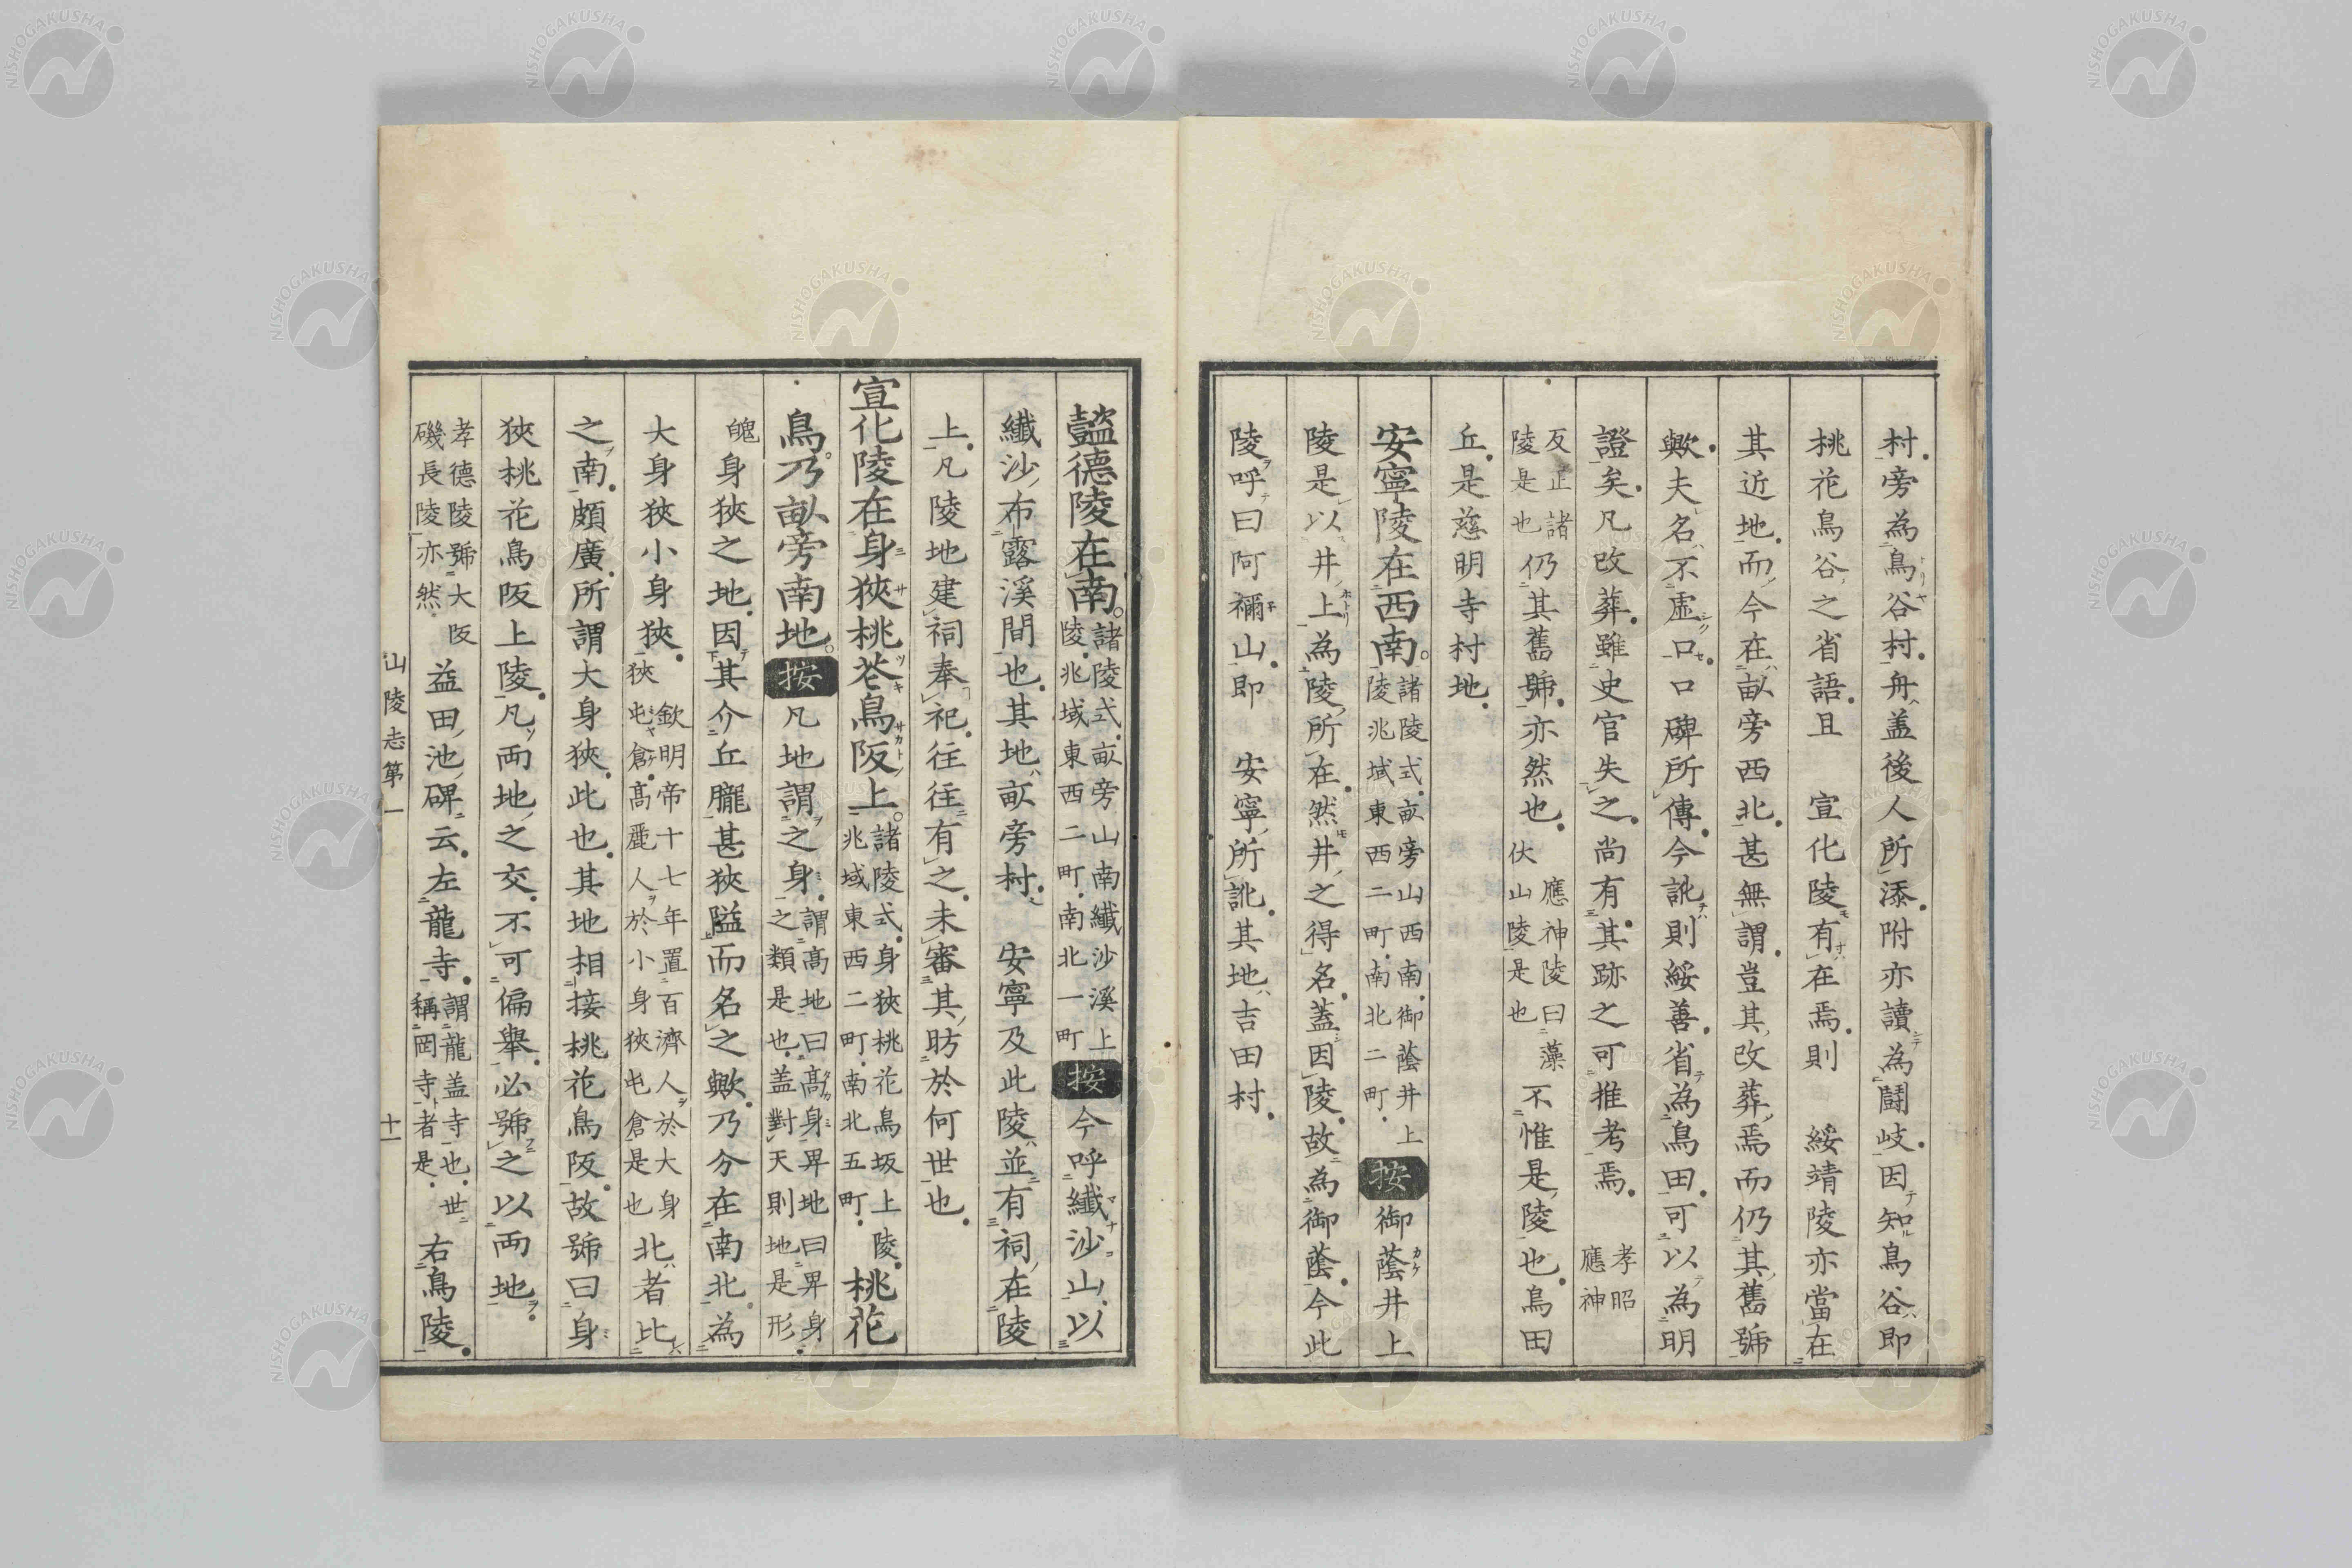 村旁為鳥谷村舟蓋後人所添附亦讀為鬪岐因知鳥谷即
桃花鳥谷之省語且 宣化陵有在焉則 綏靖陵亦當在
其近地而今在畝旁西北甚無謂豈其改葬焉而仍其舊號
歟夫名不虛口口碑所傳今訛則綏善省為鳥田可以為明
證矣凡改葬雖史官失之尚有其跡之可推考焉 孝昭應神
反正諸陵是也仍其舊號亦然也 應神陵曰藻伏山陵是也 不惟是陵也鳥田
丘是慈明寺村地
安寧陵在西南 諸陵式畝旁山西南御蔭井上陵兆域東西二町南北二町 按 御蔭井上
陵是以井上為陵所在然井之得名蓋因陵故為御蔭今此
陵呼曰阿禰山即 安寧所訛其地吉田村
懿德陵在南 諸陵式畝旁山南纖沙溪上陵兆域東西二町南北一町 按 今呼纖沙山以
纖沙布露溪間也其地畝旁村 安寧及此陵並有祠在陵
上凡陵地建祠奉祀往往有之未審其昉於何世也
宣化陵在身狹桃花鳥阪上 諸陵式身狹桃花鳥坂上陵兆域東西二町南北五町 桃花
鳥乃畝旁南地 按 凡地謂之身 謂高地曰高身畀地曰畀身之類是也蓋對天則地是形
魄 身狹之地因其介丘隴甚狹隘而名之歟乃分在南北為
大身狹小身狹 欽明帝十七年置百濟人於大身狹屯倉高麗人於小身狹屯倉是也 北者比
之南頗廣所謂大身狹此也其地相接桃花鳥阪故號曰身
狹桃花鳥阪上陵凡兩地之交不可偏舉必號之以兩地
孝德陵號大阪磯長陵亦然 益田池碑云左龍寺 謂龍蓋寺也世稱岡寺者是 右鳥陵
山陵志第一 十一
NISHOGAKUSHA